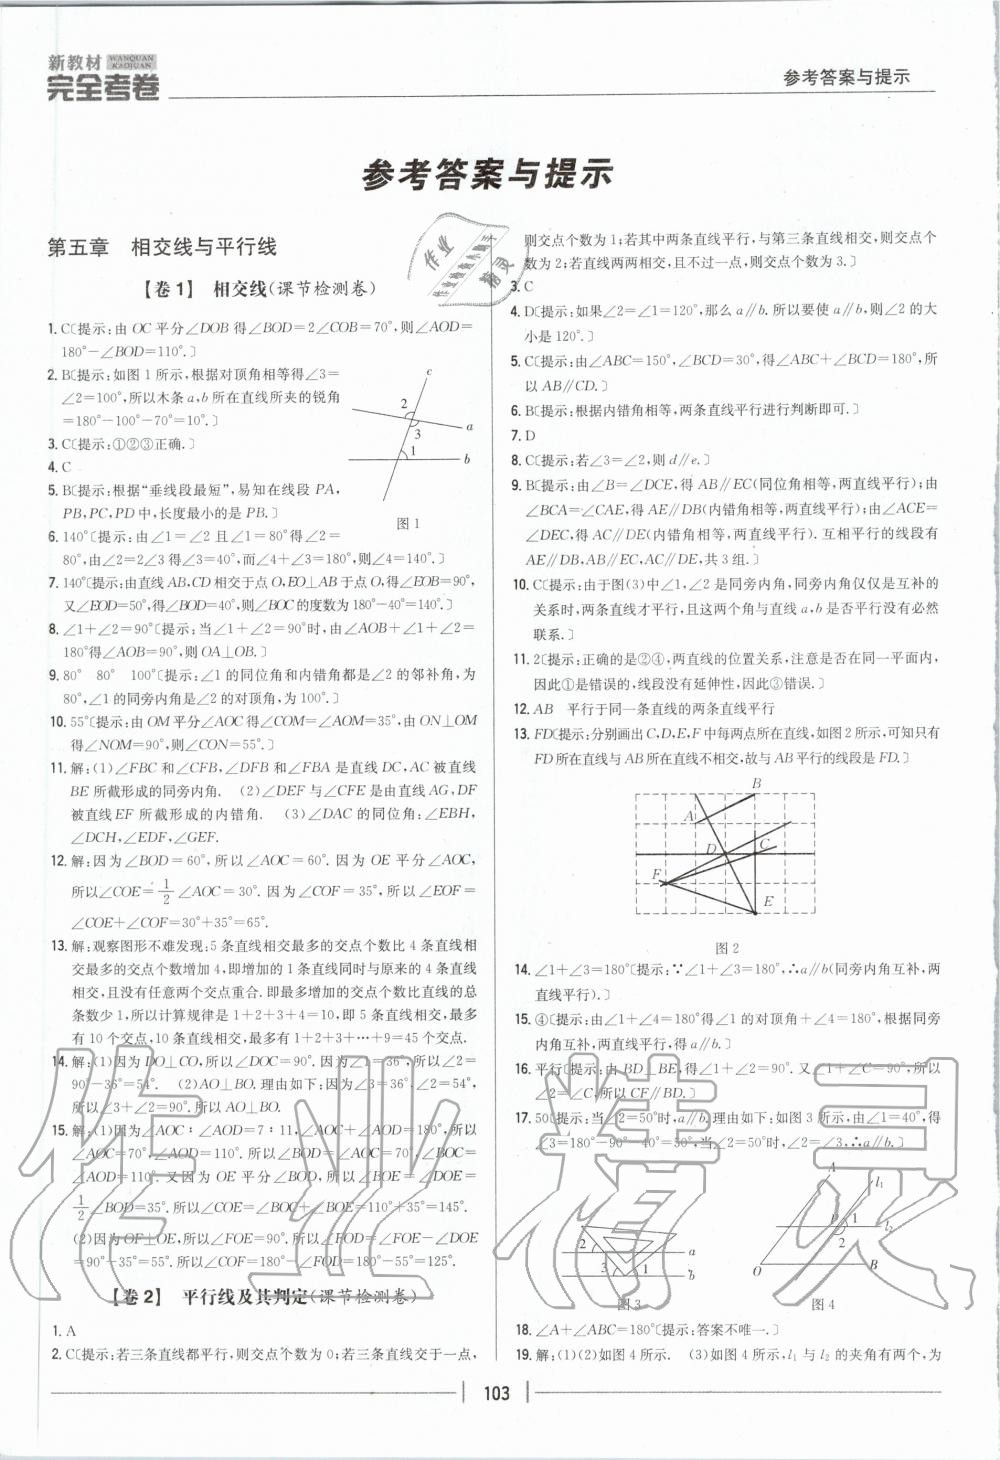 新教材 WANQUAN KAOJUAN
完全考卷
参考答案与提示
参考答案与提示
第五章 相交线与平行线
【卷1】 相交线(课节检测卷)
1. C〔提示:由 OC 平分∠DOB 得∠BOD=2∠COB=70°,则∠AOD=
180°-∠BOD=110°.〕
2. B〔提示:如图 1 所示,根据对顶角相等得∠3=
∠2=100°,所以木条 a,b 所在直线所夹的锐角
=180°-100°-70°=10°.〕
3. C〔提示:①②③正确.〕
4. C
5. B〔提示:根据“垂线段最短”,易知在线段 PA,
PB,PC,PD 中,长度最小的是 PB.〕
c
2
a
3
1
b
图 1
6. 140°〔提示:由∠1=∠2 且∠1=80°得∠2=
80°,由∠2=2∠3 得∠3=40°,而∠4+∠3=180°,则∠4=140°.〕
7. 140°〔提示:由直线 AB,CD 相交于点 O,EO⊥AB 于点 O,得∠EOB=90°,
又∠EOD=50°,得∠BOD=40°,则∠BOC 的度数为 180°-40°=140°.〕
8. ∠1+∠2=90°〔提示:当∠1+∠2=90°时,由∠AOB+∠1+∠2=
180°得∠AOB=90°,则 OA⊥OB.〕
9. 80° 80° 100°〔提示:∠1 的同位角和内错角都是∠2 的邻补角,为
80°,∠1 的同旁内角是∠2 的对顶角,为 100°.〕
10. 55°〔提示:由 OM 平分∠AOC 得∠COM=∠AOM=35°,由 ON⊥OM
得∠NOM=90°,则∠CON=55°.〕
11. 解:(1)∠FBC 和∠CFB,∠DFB 和∠FBA 是直线 DC,AC 被直线
BE 所截形成的同旁内角. (2)∠DEF 与∠CFE 是由直线 AG,DF
被直线 EF 所截形成的内错角. (3)∠DAC 的同位角:∠EBH,
∠DCH,∠EDF,∠GEF.
12. 解:因为∠BOD=60°,所以∠AOC=60°. 因为 OE 平分∠AOC,
所以∠COE=1/2∠AOC=30°. 因为∠COF=35°,所以∠EOF=
∠COE+∠COF=30°+35°=65°.
13. 解:观察图形不难发现:5 条直线相交最多的交点个数比 4 条直线相
交最多的交点个数增加 4,即增加的 1 条直线同时与原来的 4 条直线
相交,且没有任意两个交点重合. 即最多增加的交点个数比直线的总
条数少 1,所以计算规律是 1+2+3+4=10,即 5 条直线相交,最多
有 10 个交点,10 条直线相交,最多有 1+2+3+…+9=45 个交点.
14. 解:(1)因为 DO⊥CO,所以∠DOC=90°. 因为∠1=36°,所以∠2=
90°-36°=54°. (2)AO⊥BO. 理由如下:因为∠3=36°,∠2=54°,
所以∠3+∠2=90°. 所以 AO⊥BO.
15. 解:(1)因为∠AOC∶∠AOD=7∶11,∠AOC+∠AOD=180°,所以
∠AOC=70°,∠AOD=110°. 所以∠BOD=∠AOC=70°,∠BOC=
∠AOD=110°. 又因为 OE 平分∠BOD,所以∠BOE=∠DOE=
1/2∠BOD=35°. 所以∠COE=∠BOC+∠BOE=110°+35°=145°.
(2)因为 OF⊥OE,所以∠FOE=90°. 所以∠FOD=∠FOE-∠DOE
=90°-35°=55°. 所以∠COF=180°-∠FOD=180°-55°=125°.
【卷2】 平行线及其判定(课节检测卷)
1. A
2. C〔提示:若三条直线都平行,则交点个数为 0;若三条直线交于一点,
则交点个数为 1;若其中两条直线平行,与第三条直线相交,则交点个
数为 2;若直线两两相交,且不过一点,则交点个数为 3.〕
3. C
4. D〔提示:如果∠2=∠1=120°,那么 a∥b. 所以要使 a∥b,则∠2 的大
小是 120°.〕
5. C〔提示:由∠ABC=150°,∠BCD=30°,得∠ABC+∠BCD=180°,所
以 AB∥CD.〕
6. B〔提示:根据内错角相等,两条直线平行进行判断即可.〕
7. D
8. C〔提示:若∠3=∠2,则 d∥e.〕
9. B〔提示:由∠B=∠DCE,得 AB∥EC(同位角相等,两直线平行);由
∠BCA=∠CAE,得 AE∥DB(内错角相等,两直线平行);由∠ACE=
∠DEC,得 AC∥DE(内错角相等,两直线平行). 互相平行的线段有
AE∥DB,AB∥EC,AC∥DE,共 3 组.〕
10. C〔提示:由于图(3)中∠1,∠2 是同旁内角,同旁内角仅仅是互补的
关系时,两条直线才平行,且这两个角与直线 a,b 是否平行没有必然
联系.〕
11. 2〔提示:正确的是②④,两直线的位置关系,注意是否在同一平面内,
因此①是错误的,线段没有延伸性,因此③错误.〕
12. AB 平行于同一条直线的两条直线平行
13. FD〔提示:分别画出 C,D,E,F 中每两点所在直线,如图 2 所示,可知只有
FD 所在直线与 AB 所在直线不相交,故与 AB 平行的线段是 FD.〕
B
A
D
C
F
E
图 2
14. ∠1+∠3=180°〔提示:∵∠1+∠3=180°,∴a∥b(同旁内角互补,两
直线平行).〕
15. ④〔提示:由∠1+∠4=180°得∠1 的对顶角+∠4=180°,根据同旁
内角互补,两直线平行,得 a∥b.〕
16. 平行〔提示:由 BD⊥BE,得∠1+∠2=90°. 又∠1+∠C=90°,所以
∠2=∠C,所以 CF∥BD.〕
17. 50〔提示:当∠2=50°时,a∥b. 理由如下:如图 3 所示,由∠1=40°,得
∠3=180°-90°-40°=50°,当∠2=50°时,∠2=∠3,∴a∥b.〕
2
a
3
1
b
图 3
A
l₁
P
1
l₂
2
O
B
图 4
18. ∠A+∠ABC=180°〔提示:答案不唯一.〕
19. 解:(1)(2)如图 4 所示. (3)如图 4 所示,l₁ 与 l₂ 的夹角有两个,为
103
作业精灵